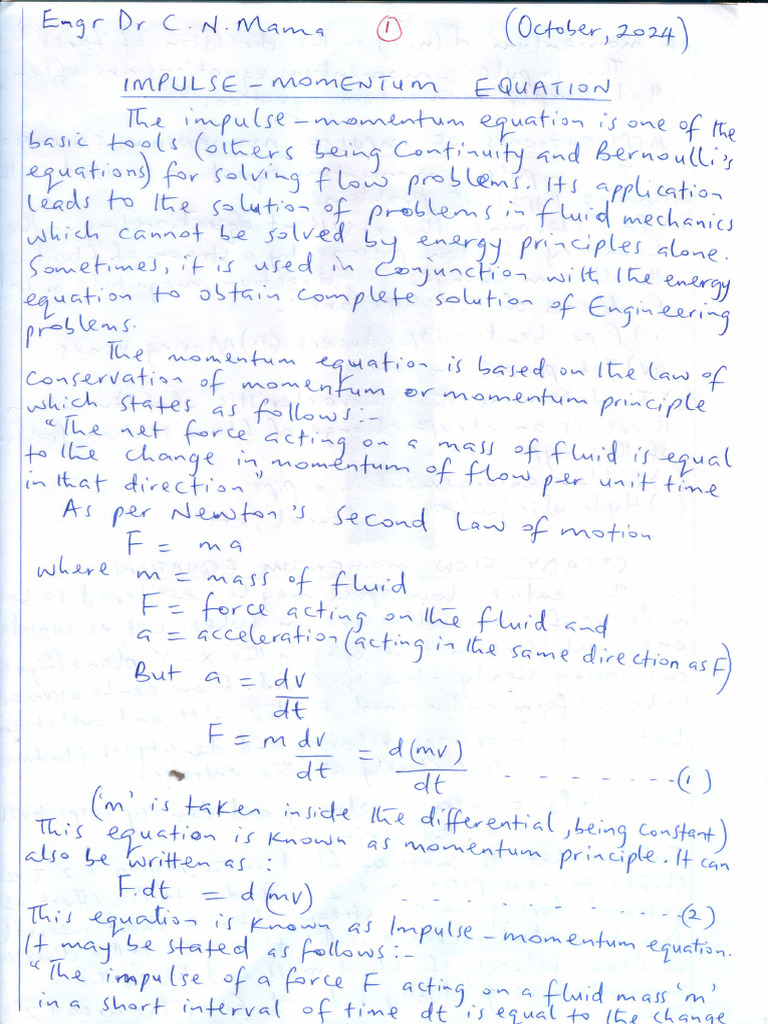 Engr Dr C. N. Mama ① (October, 2024)
IMPULSE – MOMENTUM EQUATION
The impulse – momentum equation is one of the
basic tools (others being Continuity and Bernoulli's
equations) for solving flow problems. Its application
leads to the solution of problems in fluid mechanics
which cannot be solved by energy principles alone.
Sometimes, it is used in conjunction with the energy
equation to obtain complete solution of Engineering
problems.
The momentum equation is based on the law of
conservation of momentum or momentum principle
which states as follows:-
"The net force acting on a mass of fluid is equal
to the change in momentum of flow per unit time
in that direction"
As per Newton's second law of motion
F = ma
where m = mass of fluid
F = force acting on the fluid and
a = acceleration (acting in the same direction as F)
But a = dv/dt
F = m dv/dt = d(mv)/dt - - - - - - - - (1)
('m' is taken inside the differential, being constant)
This equation is known as momentum principle. It can
also be written as:
F.dt = d(mv) - - - - - - - - (2)
This equation is known as Impulse – momentum equation.
It may be stated as follows:-
"The impulse of a force F acting on a fluid mass 'm'
in a short interval of time dt is equal to the change